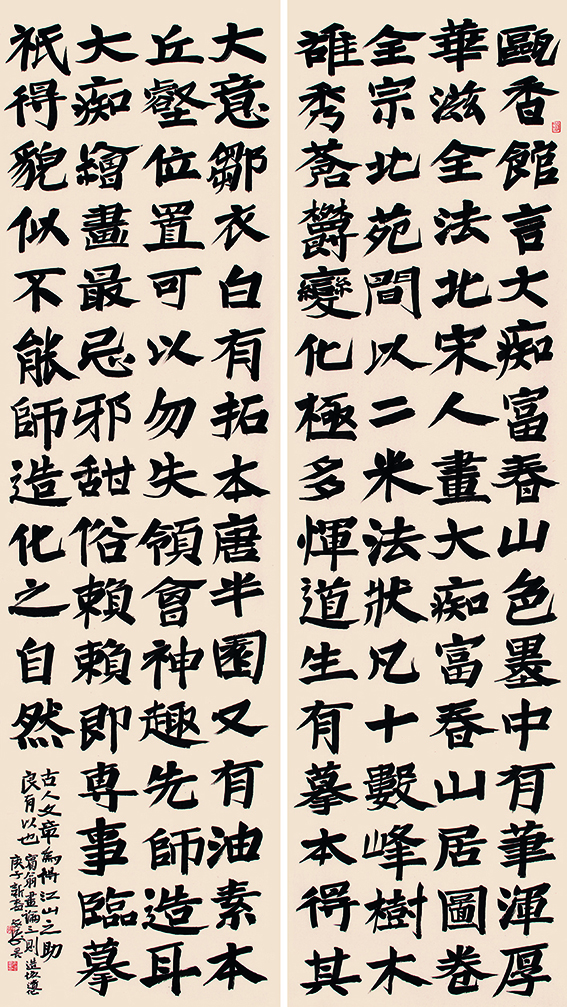 甌香館言大痴富春山色墨中有筆渾厚
華滋全法北宋人畫大痴富春山居圖卷
全宗北苑間以二米法狀凡十數峰樹木
雄秀蒼欝變化極多惲道生有摹本得其
大意鄒衣白有拓本唐半園又有油素本
丘壑位置可以勿失領會神趣先師造耳
大痴繪畫最忌邪甜俗賴賴即專事臨摹
祇得貌似不能師造化之自然
古人文章江山之助
良有以也 賓翁畫論三則
庚子新春